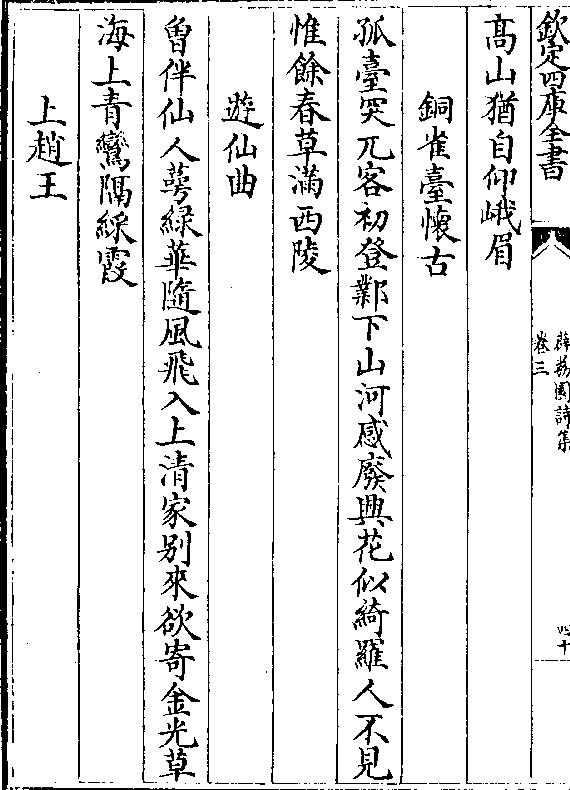 欽定四庫全書
薜荔園詩集
卷三
四十
高山猶自仰峨眉
銅雀臺懷古
孤臺突兀客初登鄴下山河感廢興花似綺羅人不見
惟餘春草滿西陵
遊仙曲
曾伴仙人萼綠華隨風飛入上清家别來欲寄金光草
海上青鸞隔綵霞
上趙王